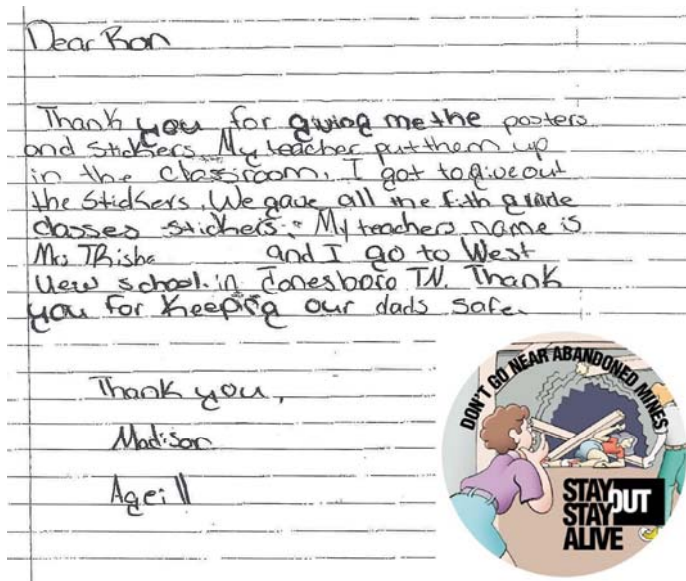 Dear Ron
Thank you for giving me the posters
and stickers. My teacher put them up
in the classroom. I got to give out
the stickers. We gave all the fith grade
classes stickers. My teachers name is
Mrs Trisha and I go to West
View school in Jonesboro TN. Thank
you for keeping our dads safe.
Thank you,
Madison
Age: 11
DON'T GO NEAR ABANDONED MINES
STAY OUT
STAY
ALIVE